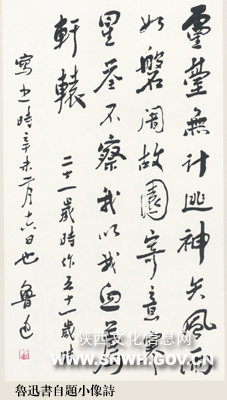 靈臺無計逃神矢風雨
如磐闇故園寄意寒
星荃不察我以我血薦
軒轅
二十一歲時作五十一歲時
寫之時辛未二月十六日也 魯迅
陕西文化信息网
WWW.SNWH.GOV.CN
魯迅書自題小像詩